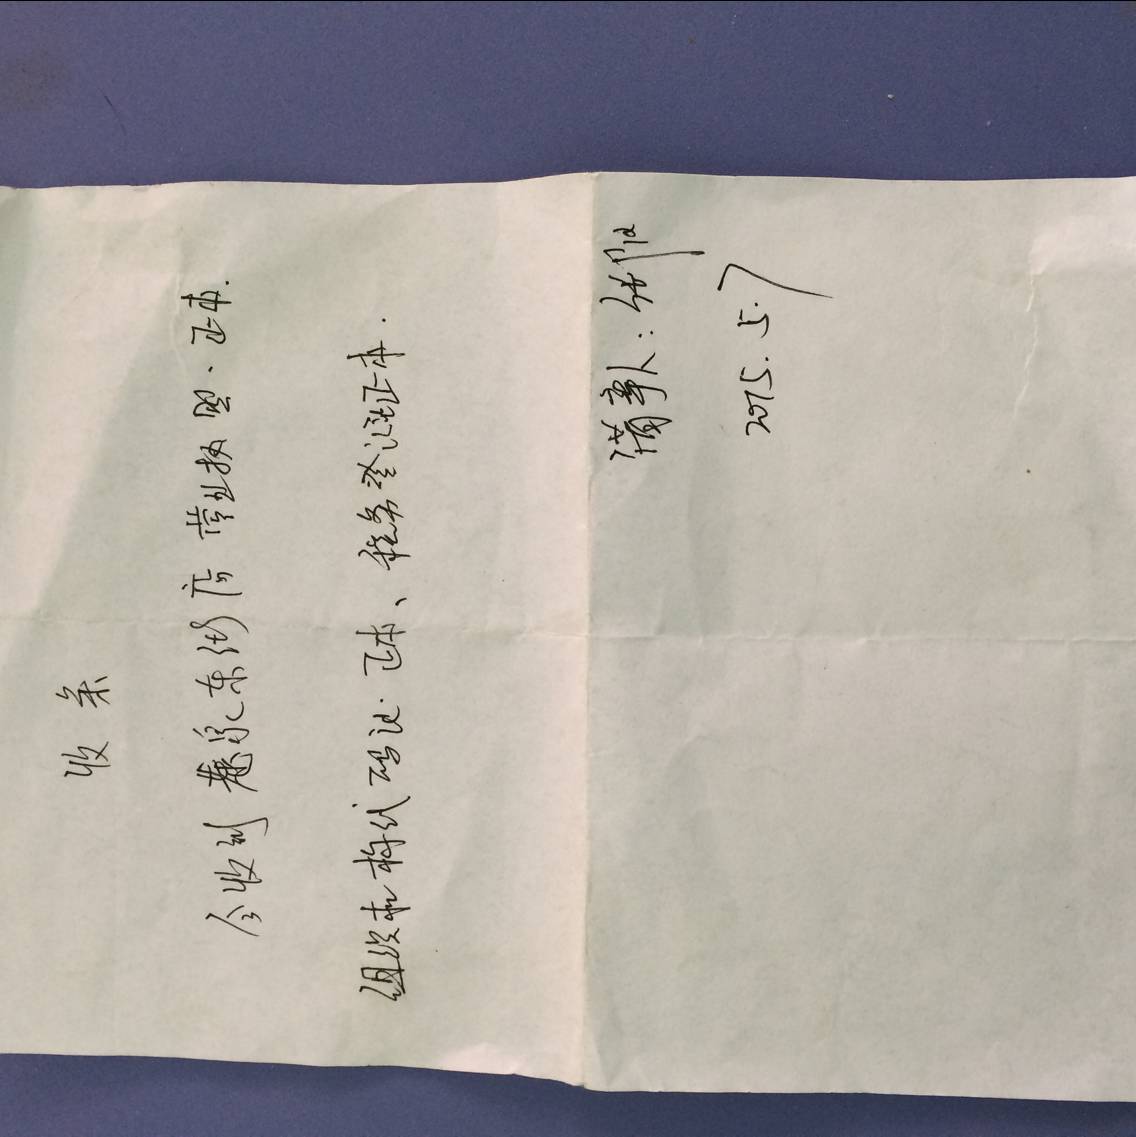 收条
今收到 慈泉东街店 营业执照、正本.
组织机构代码证.正本、税务登记证正本.
经事人:
2015.5.7